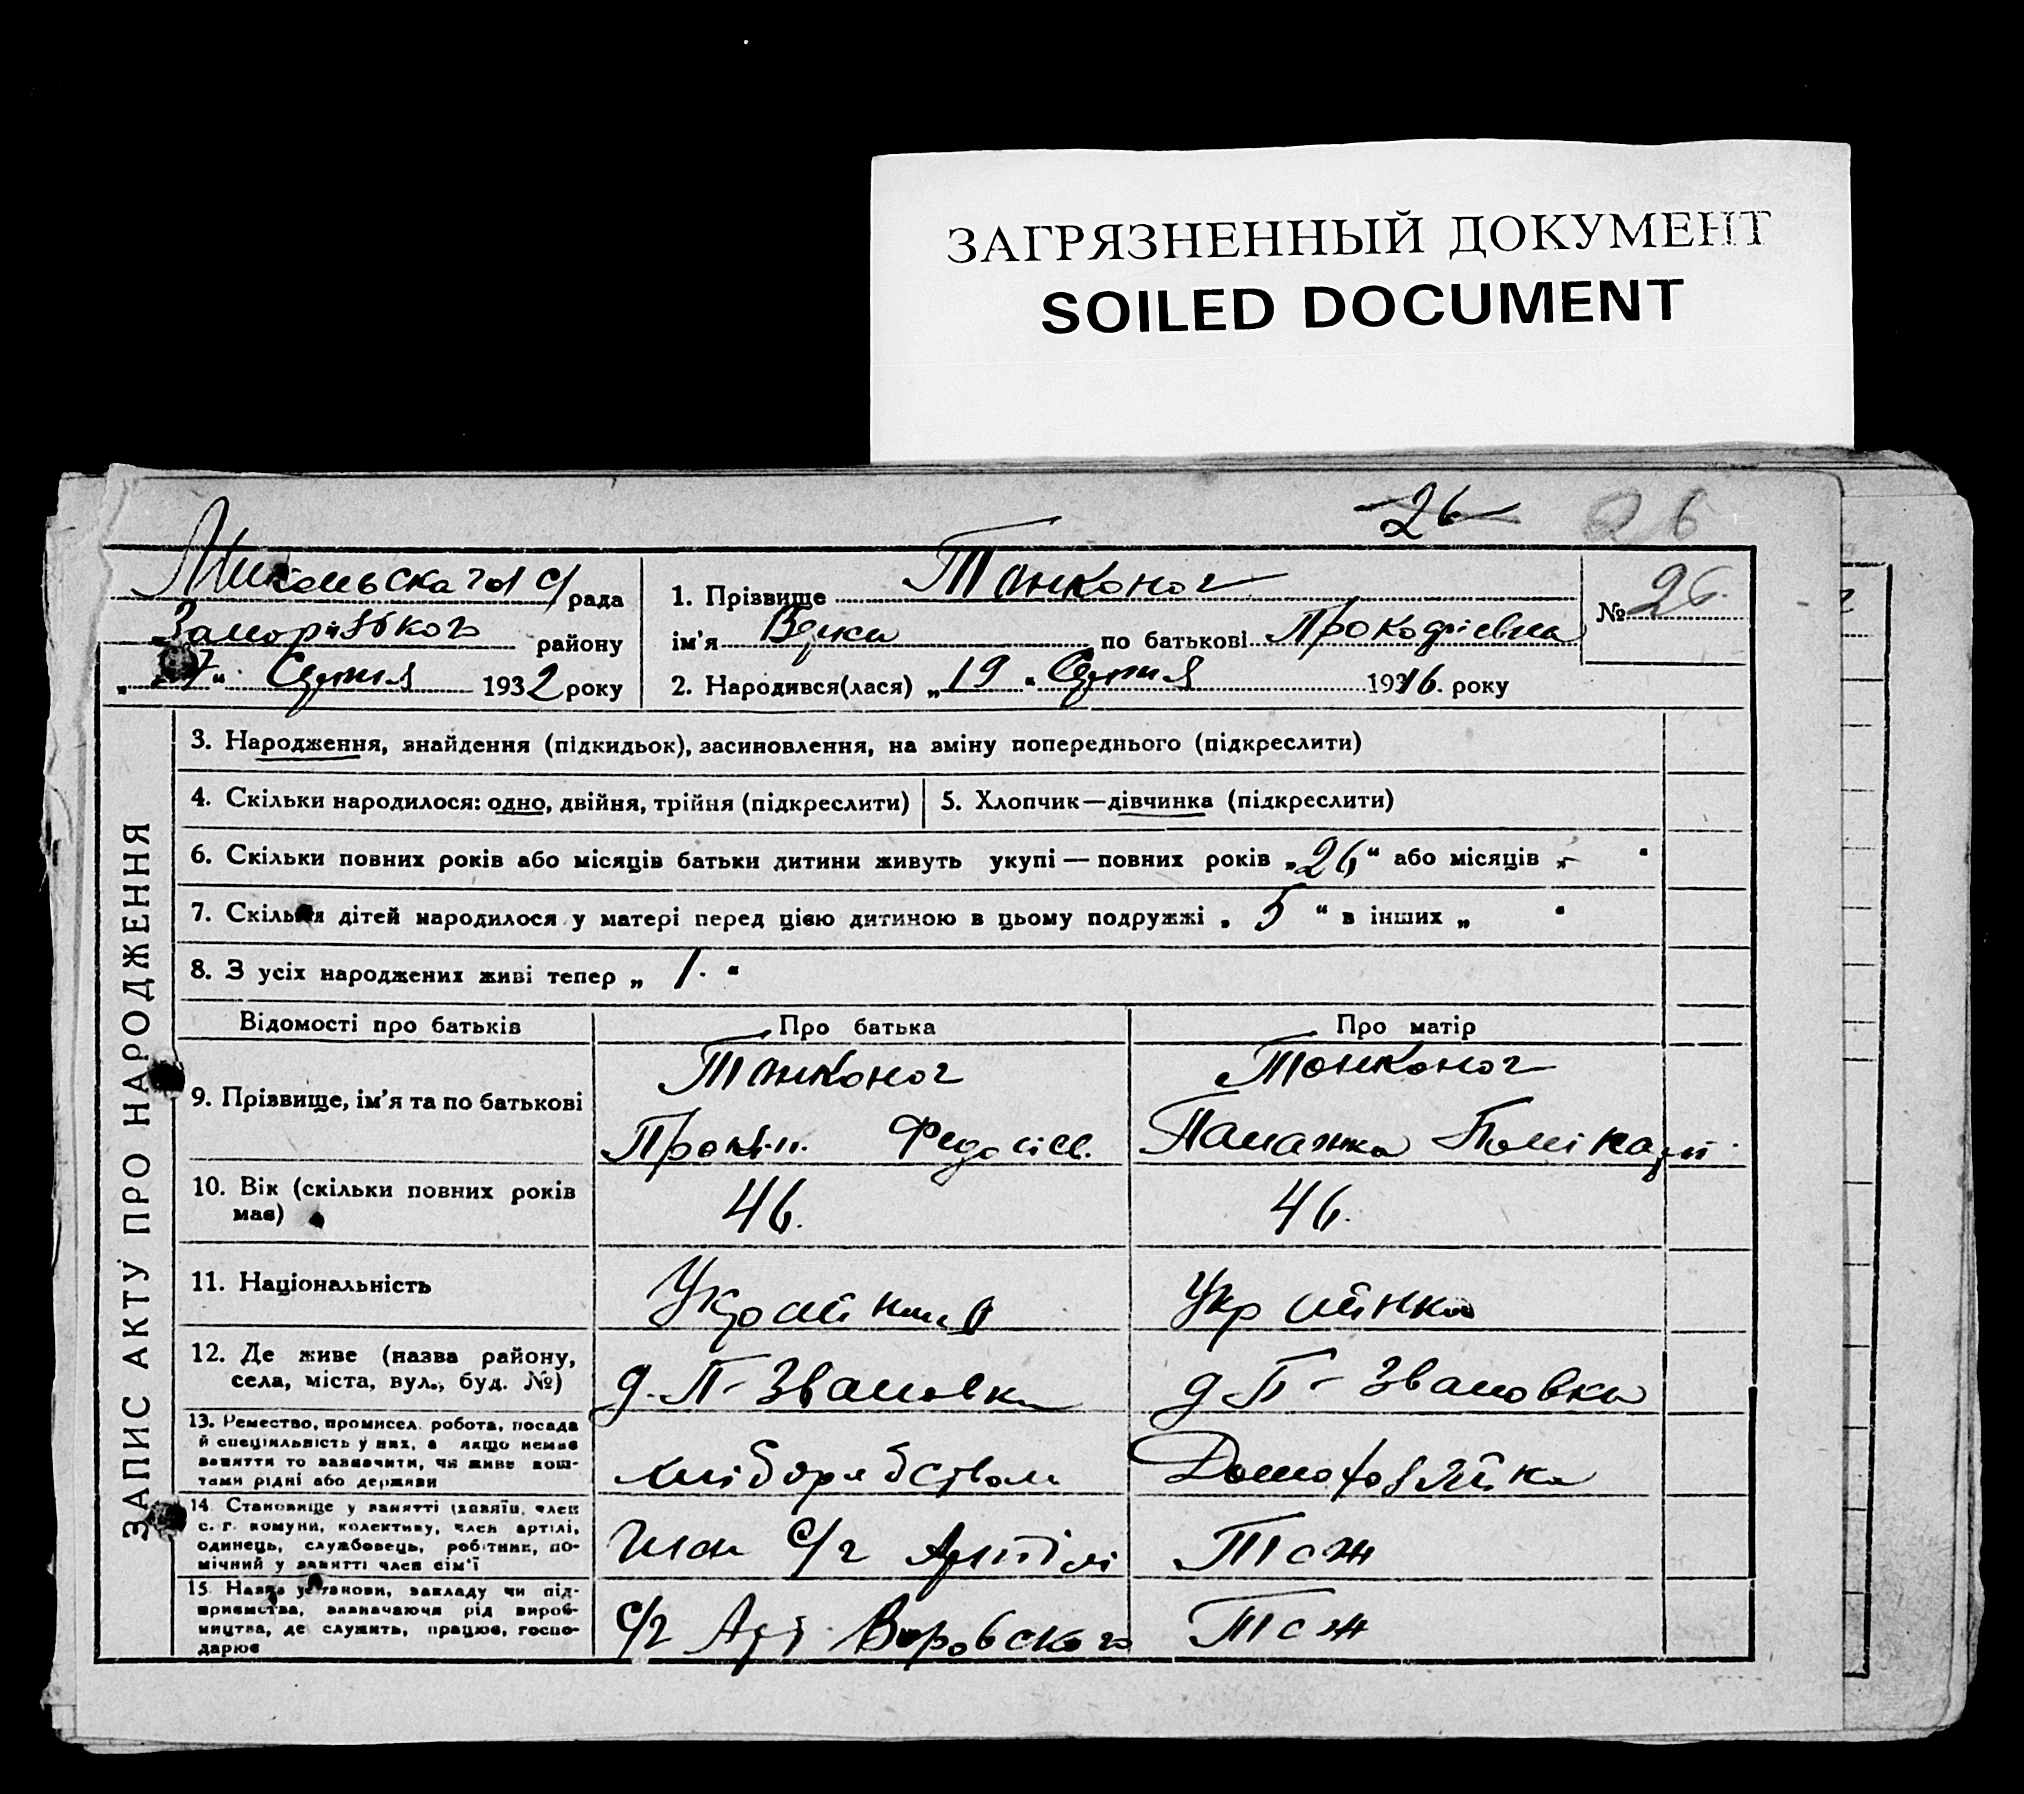 ЗАГРЯЗНЕННЫЙ ДОКУМЕНТ
SOILED DOCUMENT
26 26
рада
району
" 1932 року
1. Прізвище Тонконог
ім'я по батькові Прокофієвна
2. Народився(лася) „19" 1916. року
№ 26.
ЗАПИС АКТУ ПРО НАРОДЖЕННЯ
3. Народження, знайдення (підкидьок), засиновлення, на зміну попереднього (підкреслити)
4. Скільки народилося: одно, двійня, трійня (підкреслити)
5. Хлопчик—дівчинка (підкреслити)
6. Скільки повних років або місяців батьки дитини живуть укупі — повних років „26" або місяців „- "
7. Скільки дітей народилося у матері перед цією дитиною в цьому подружжі „ 5 " в інших „ "
8. З усіх народжених живі тепер „ 1. "
Відомості про батьків Про батька Про матір
9. Прізвище, ім'я та по батькові
Тонконог Тонконог
46. 46.
10. Вік (скільки повних років
має)
11. Національність
Українка
12. Де живе (назва району,
села, міста, вул., буд. №)
д. П-Звановка д П-Звановка
13. Ремество, промисел, робота, посада
й спеціяльність у них, а якщо немає
заняття то зазначити, чи живе кош-
тами рідні або держави
Домохозяйка
14. Становище у занятті (хазяїн, член
с.-г. комуни, колективу, член артілі,
одинець, службовець, робітник, по-
мічний у занятті член сім'ї
Член с/г Артілі Тож
15. Назва установи, закладу чи під-
приємства, зазначаючи рід вироб-
ництва, де служить, працює, госпо-
дарює
с/г Арт Воровского Тож